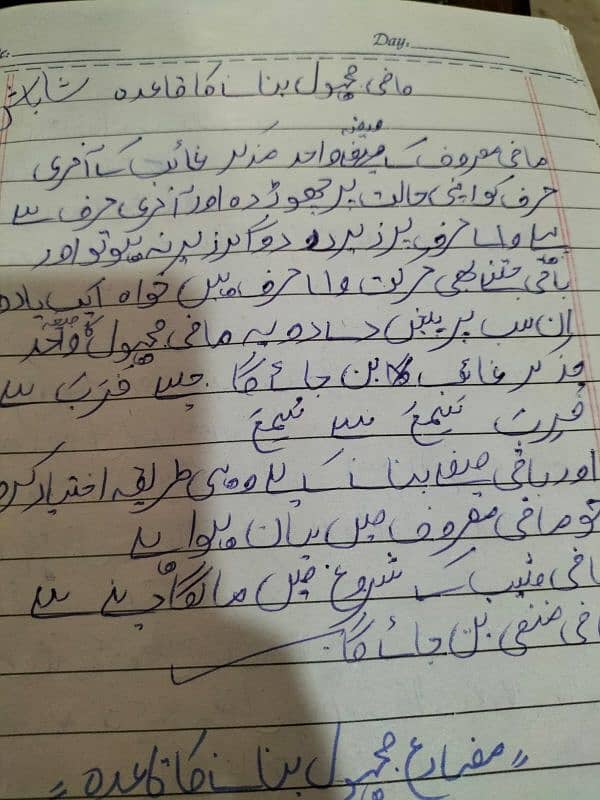 Day.
ماضی مجہول بنانے کا قاعدہ شاباش
صیغہ
ماضی معروف کے صیغہ واحد مذکر غائب کے آخری
حرف کو اپنی حالت پر چھوڑ دہ اور آخری حرف سے
پہلے والے حرف پر زیر دہ دو اگر زیر نہ ہو تو اور
باقی جتنے بھی حرکت والے حرف ہیں خواہ ایک یا دو
ان سب پر پیش دے دو یہ ماضی مجہول کا واحد صیغہ
مذکر غائب کا بن جائے گا. جیسے ضَرَبَ سے
ضُرِبَ سَمِعَ سے سُمِعَ
اور باقی صیغے بنانے کے لیے وہی طریقہ اختیار کرو
جو ماضی معروف میں بیان ہوا ہے
ماضی مثبت کے شروع میں ما لگا دینے سے
ماضی منفی بن جائے گا.
"مضارع مجہول بنانے کا قاعدہ"